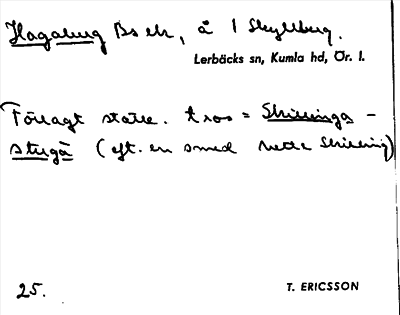 Hagaberg Bs eh, å 1 Skyllberg.
Lerbäcks sn, Kumla hd, Ör. l.
Förlagt ställe. tros = Skrillinga-
stugå (eft. en smed hette Skrilling)
25.
T. ERICSSON